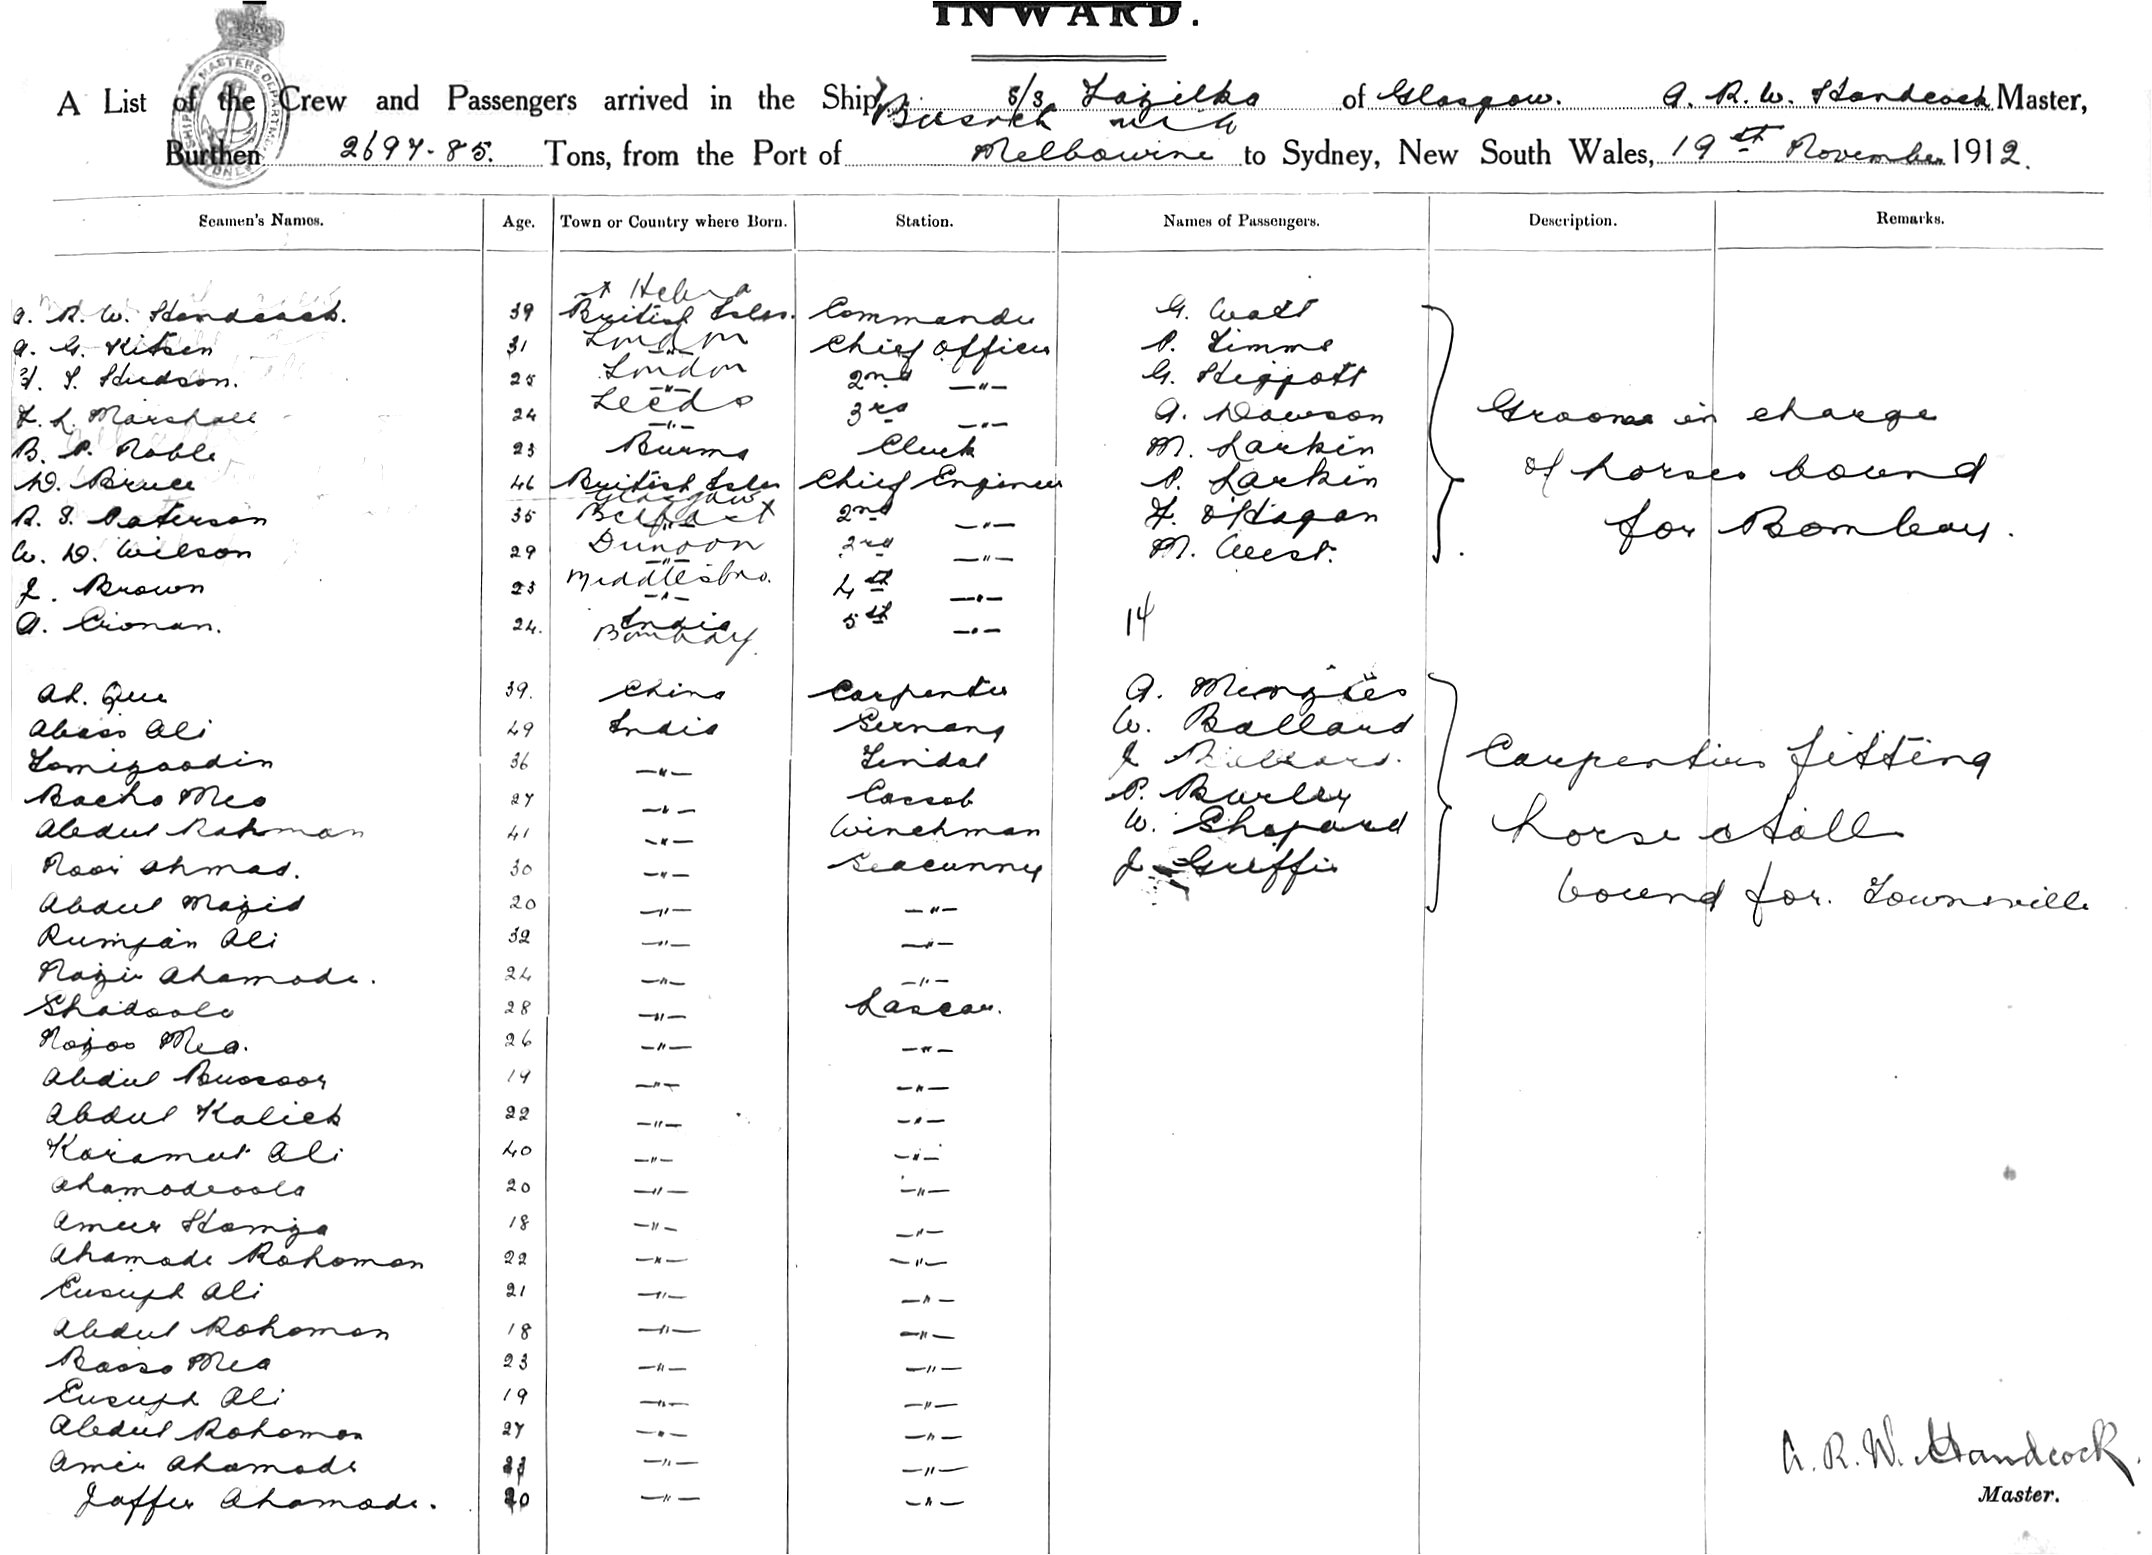 INWARD.
A List of the Crew and Passengers arrived in the Ship s/s Fazilka of Glasgow. A. R. W. Handcock Master,
Busreh via
Burthen 2697-85. Tons, from the Port of Melbourne to Sydney, New South Wales, 19th November 1912.
Seamen's Names. Age. Town or Country where Born. Station. Names of Passengers. Description. Remarks.
St Helena
A. R. W. Handcock. 39 British Isles. Commander G. Watt
A. G. Kitson 31 London -"- Chief Officer P. Timms
H. S. Hudson. 25 London -"- 2nd -"- G. Higgott
F. L. Marshall 24 Leeds -"- 3rd -"- A. Dawson Grooms in charge
B. P. Noble 23 Burma Clerk M. Larkin
D. Bruce 46 British Isles Chief Engineer P. Larkin of horses bound
Glasgow
R. S. Paterson 35 Belfast -"- 2nd -"- F. O'Hagan for Bombay.
W. D. Wilson 29 Dunoon -"- 3rd -"- M. West.
J. Brown 23 Middlesbro. -"- 4th -"-
A. Cronan. 24. India 5th -"- 14
Bombay
Ah. Que 39. China Carpenter A. Menzies
Abass Ali 49 India Serang W. Ballard
Tomizoodin 36 -"- Tindal J Ballard. Carpenters fitting
Bacha Mea 27 -"- Cassab P. Burley
Abdul Rahman 41 -"- Winchman W. Shepard horse stalls
Noor Ahmad. 30 -"- Seacunny J Griffin
Abdul Mazid 20 -"- -"- bound for. Townsville
Rumjan Ali 32 -"- -"-
Nazir Ahamode. 24 -"- -"-
Shadoola 28 -"- Lascar.
Nojoo Mea. 26 -"- -"-
Abdul Bussoor 19 -"- -"-
Abdul Kalick 22 -"- -"-
Karamut Ali 40 -"- -"-
Ahamodeoola 20 -"- -"-
Ameer Hamza 18 -"- -"-
Ahamode Rohoman 22 -"- -"-
Eusuph Ali 21 -"- -"-
Abdul Rohoman 18 -"- -"-
Basso Mea 23 -"- -"-
Eusuph Ali 19 -"- -"-
Abdul Rohoman 27 -"- -"-
Amir Ahamode -"- -"- A. R. W. Handcock.
Jaffer Ahamode. 20 -"- -"- Master.